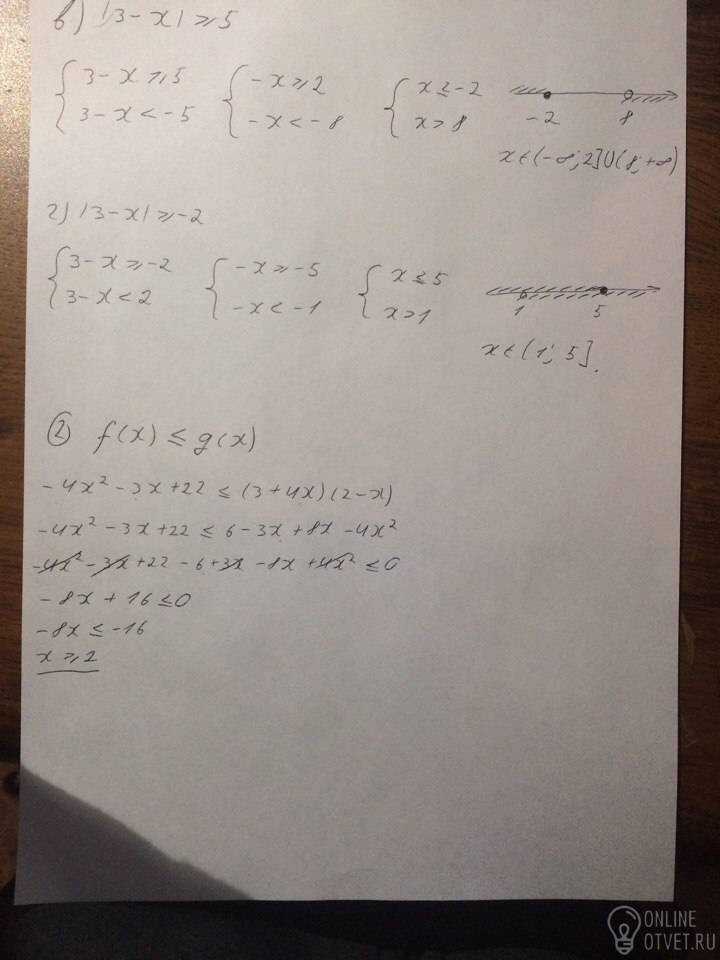 в) |3-x| ≥ 5
{ 3-x ≥ 5 { -x ≥ 2 { x ≤ -2
3-x < -5 -x < -8 x > 8
-2 8
x ∈ (-∞; 2] ∪ (8; +∞)
г) |3-x| ≥ -2
{ 3-x ≥ -2 { -x ≥ -5 { x ≤ 5
3-x < 2 -x < -1 x > 1
1 5
x ∈ (1; 5].
② f(x) ≤ g(x)
-4x² - 3x + 22 ≤ (3+4x)(2-x)
-4x² - 3x + 22 ≤ 6 - 3x + 8x - 4x²
-4x² - 3x + 22 - 6 + 3x - 8x + 4x² ≤ 0
-8x + 16 ≤ 0
-8x ≤ -16
x ≥ 2
ONLINE
OTVET.RU